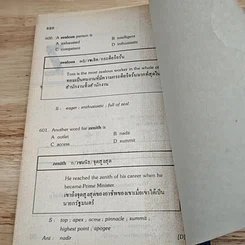 680
600. A zealous person is
A exhausted B intelligent
C competent D enthusiastic
zealous
Tom is the most zealous worker in the whole of
S : eager ; enthusiastic ; full of zeal
601. Another word for zenith is
A outlet B nadir
C access D summit
zenith น/เซนนิธ/จุดสูงสุด
He reached the zenith of his career when he
became Prime Minister.
เขาถึงจุดสูงสุดของอาชีพของเขาเมื่อเขาได้เป็น
นายกรัฐมนตรี
S : top ; apex ; acme ; pinnacle ; summit ;
highest point ; apogee
Ant : nadir [D]